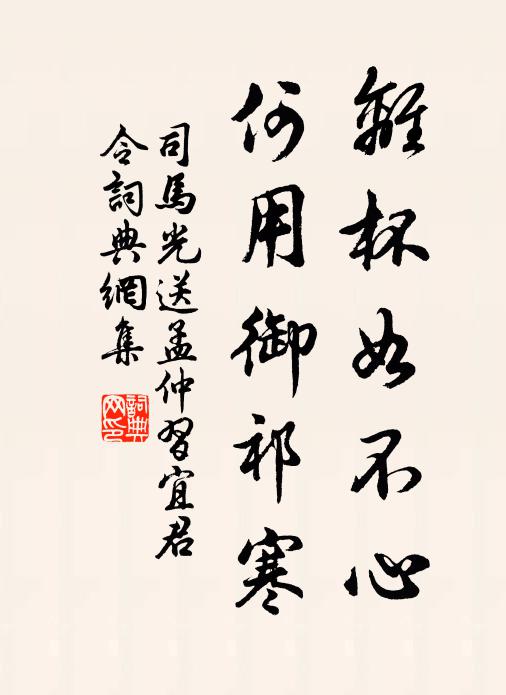 離杯如不心
何用御祁寒
司馬光送孟仲習宜君
令詞典網集
詞典網印